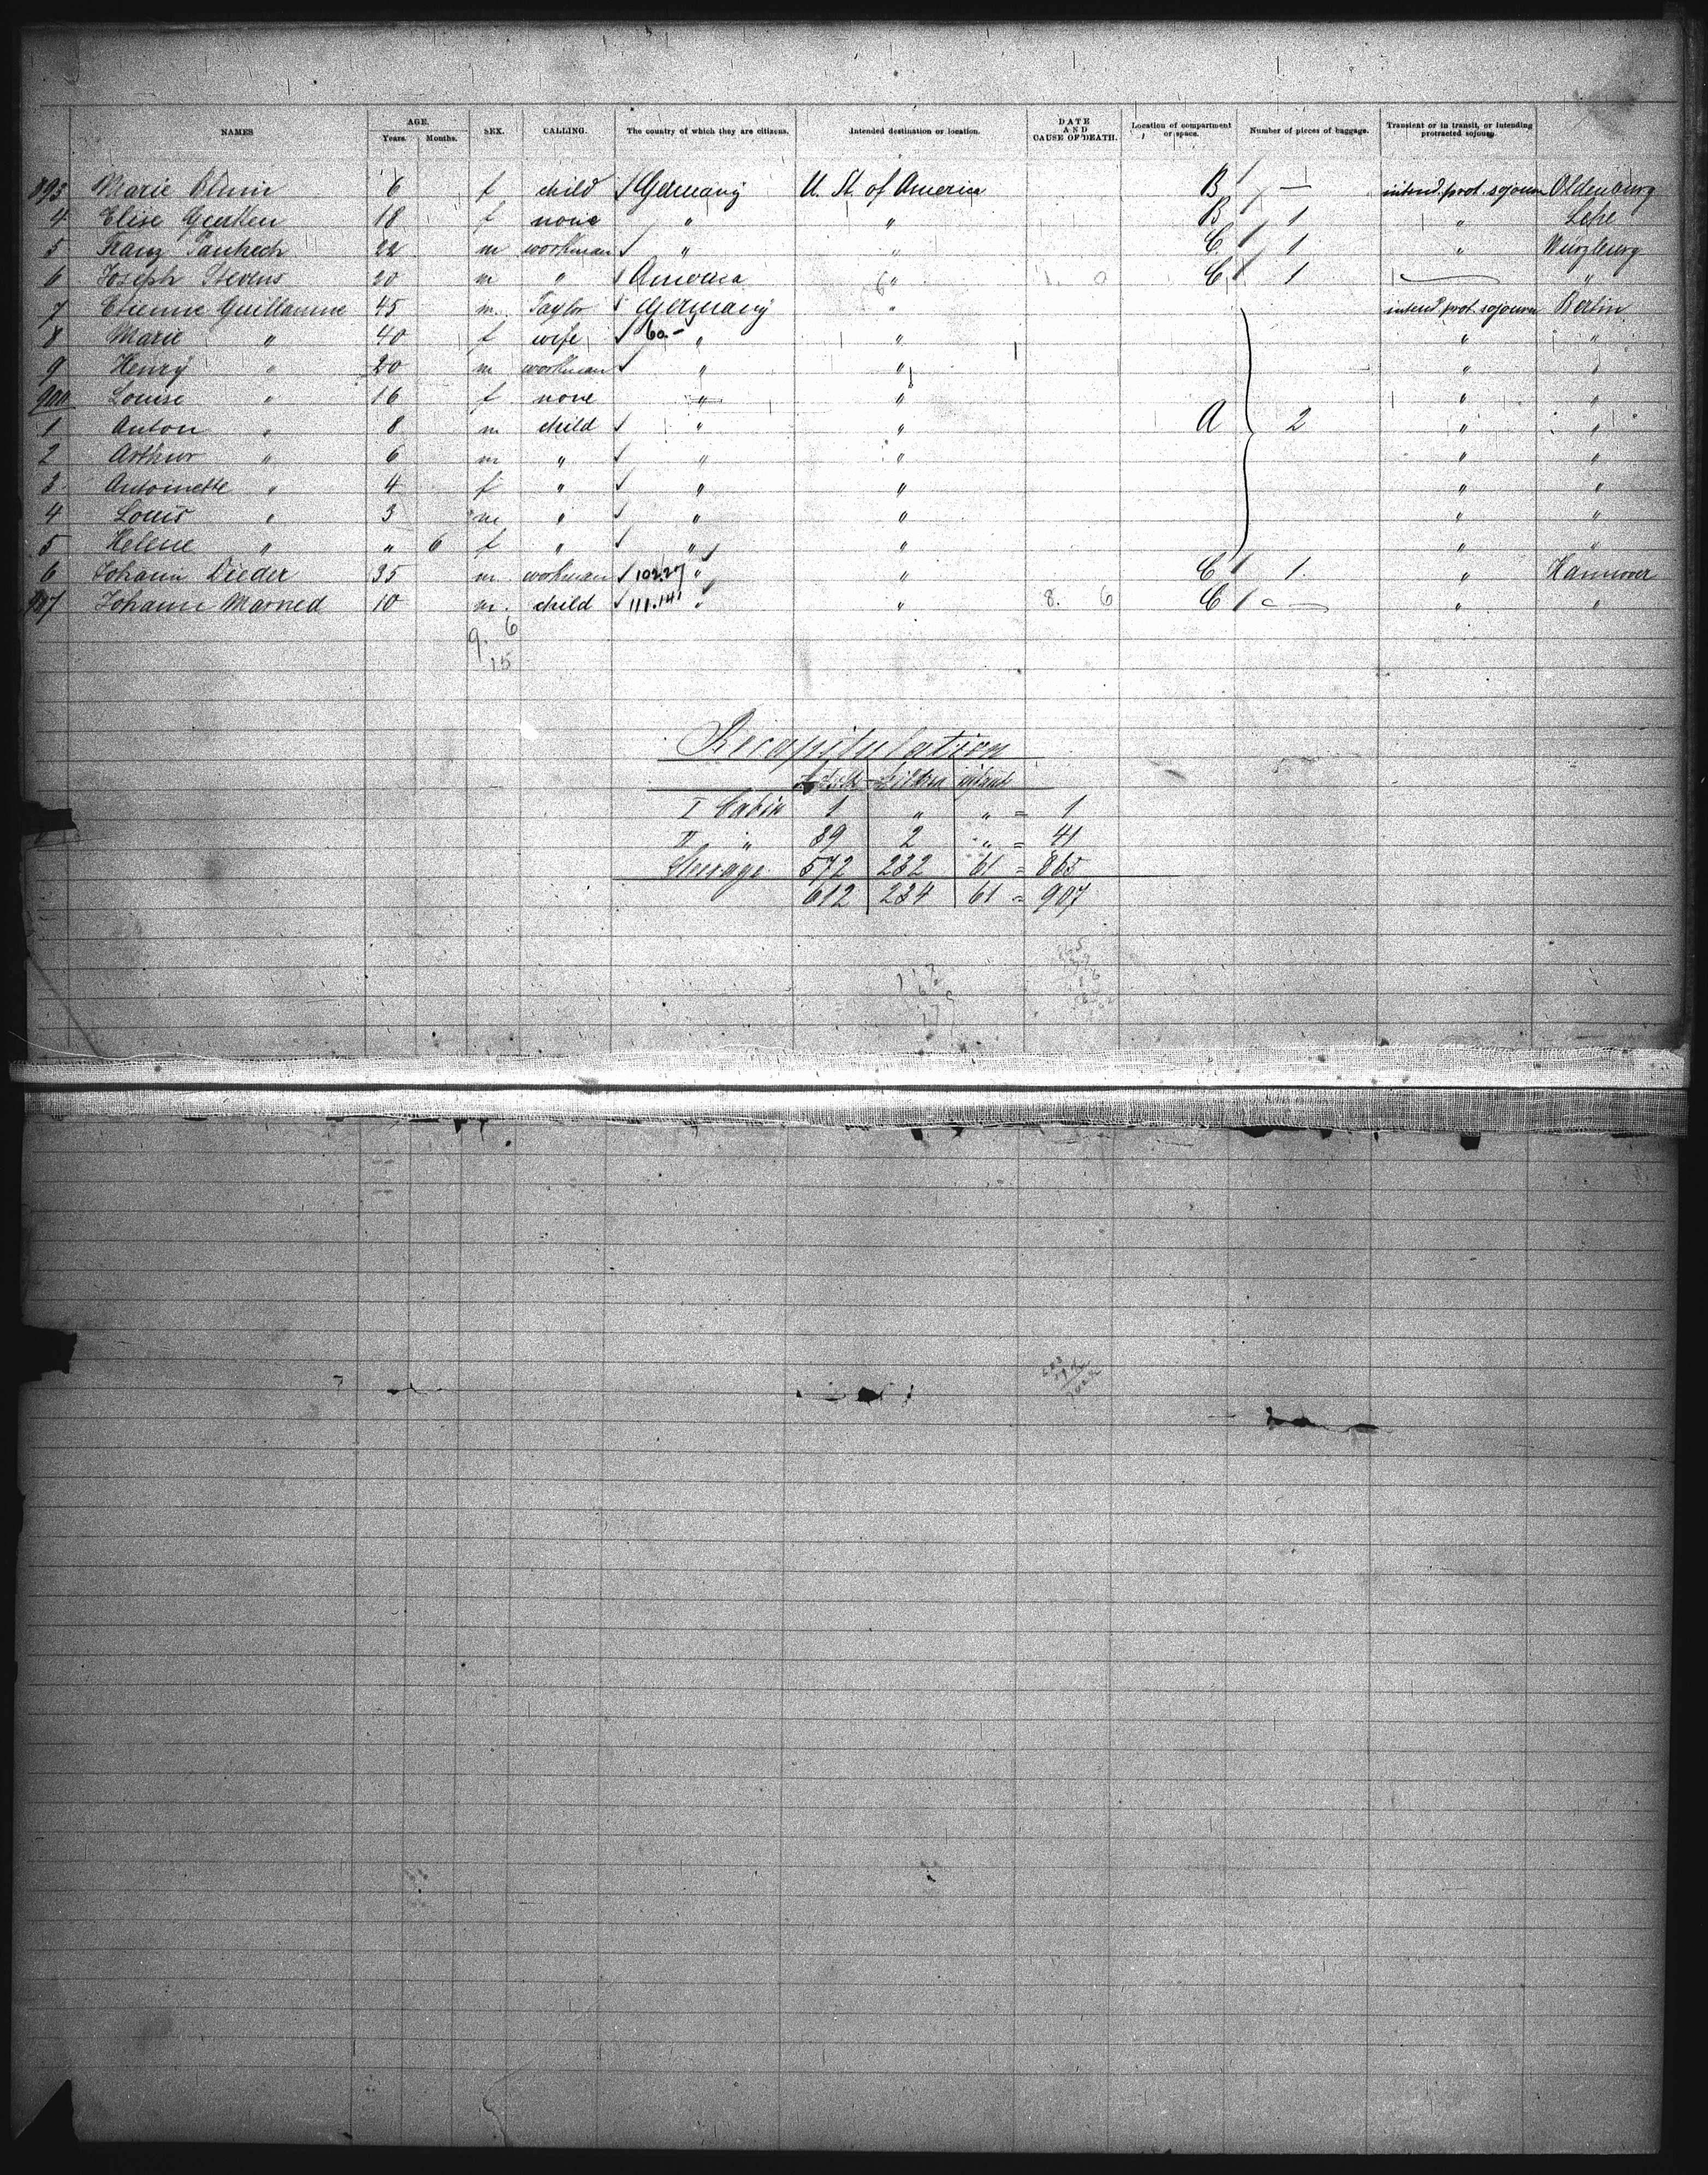 NAMES AGE. Years. Months. SEX. CALLING. The country of which they are citizens. Intended destination or location. DATE AND CAUSE OF DEATH. Location of compartment or space. Number of pieces of baggage. Transient or in transit, or intending protracted sojourn.
893 Marie Blum 6 f child Germany U. St. of America B — intend. prot. sojourn Oldenburg
4 Elise 18 f none " " B 1 " Lehe
5 Franz 22 m workman " " C 1 " Würzburg
6 Joseph 20 m " America " C 1 — "
7 Etienne Guillaume 45 m Taylor Germany " intend. prot. sojourn Berlin
8 Marie " 40 f wife 60- " " " "
9 Henry " 20 m workman " " " "
900 Louise " 16 f none " " " "
1 Anton " 8 m child " " A 2 " "
2 Arthur " 6 m " " " " "
3 Antoinette " 4 f " " " " "
4 Louis " 3 m " " " " "
5 Helene " " 6 f " " " " "
6 Johann Dieder 35 m workman 102.27 " " C 1. " Hannover
907 Johann Marned 10 m. child 111.141 " " 8. 6 C — " "
9. 6
15
Recapitulation
Adults Children infants
I Cabin 1 " " = 1
II " 39 2 " = 41
Steerage 572 232 61 = 865
612 234 61 = 907